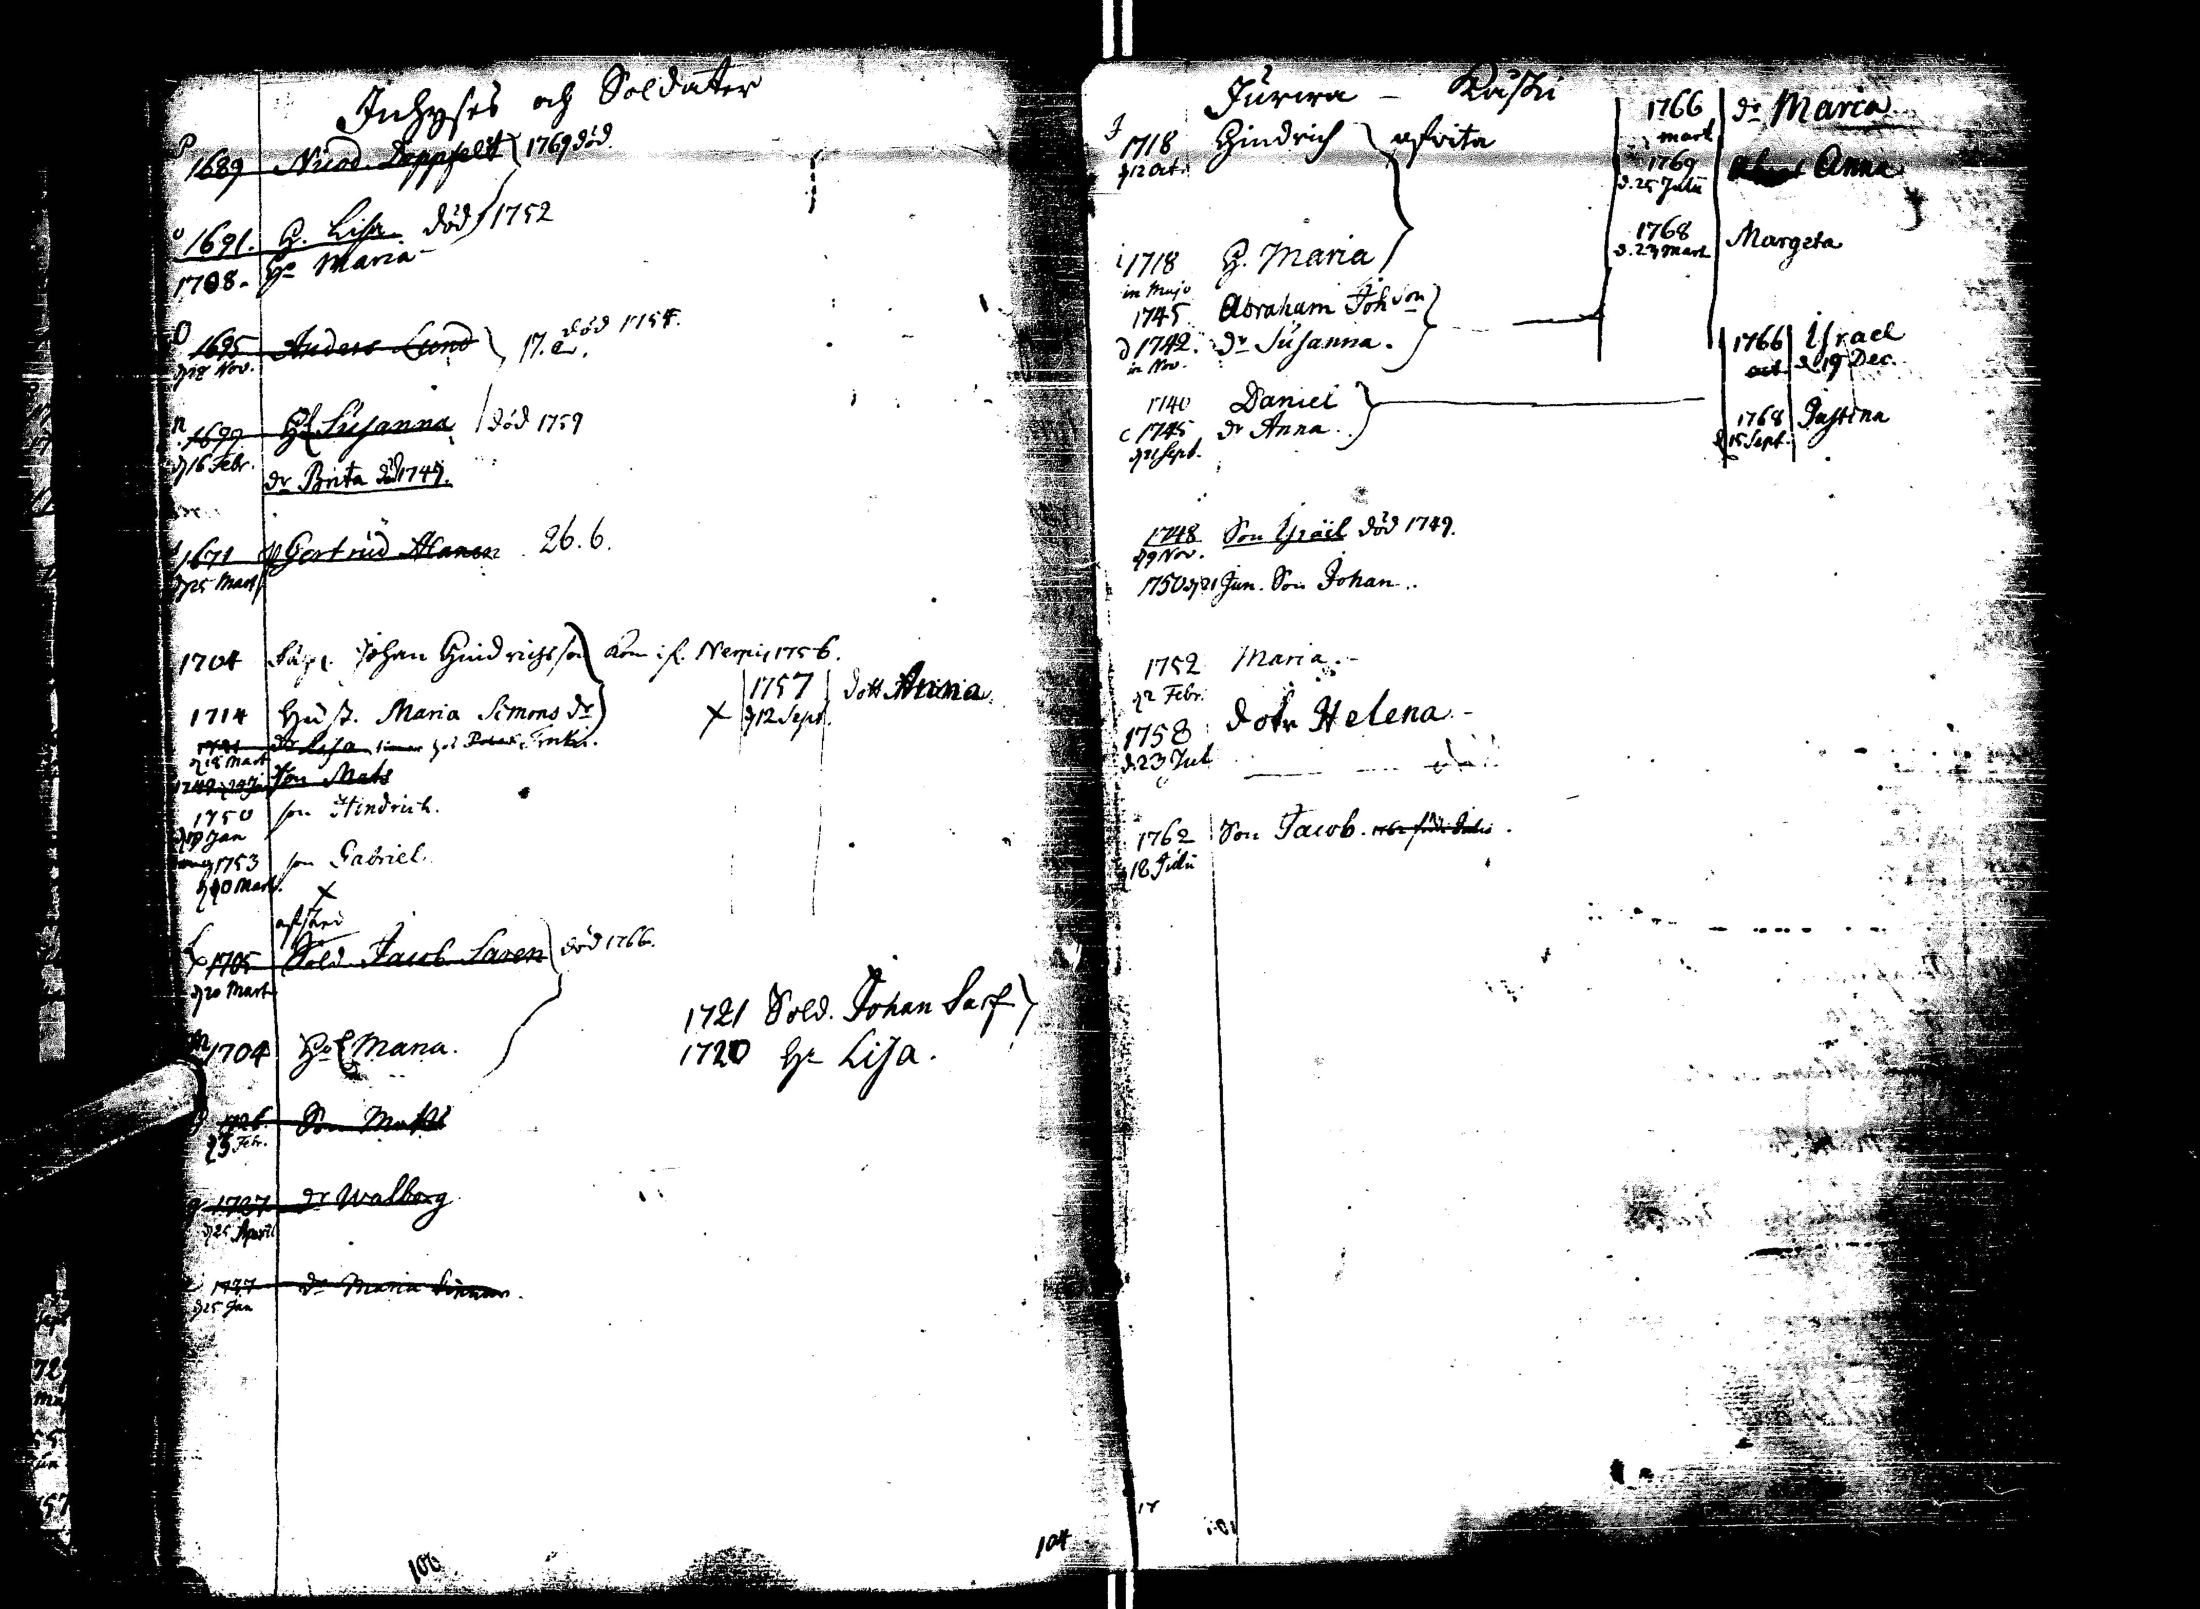 Inhyses och Soldater
P 1689 Nicod. Deppfelt 1769 död
o 1691. H. Lisa. död 1752
1708. Ha Maria
O 1695 Anders Lund 17. död 1754.
d 18 Nov.
n 1699 H Susanna död 1759
d 16 Febr.
dr Brita död 1749.
1671 Gertrud Alanen 26.6.
d 25 Mart
1704 Johan Hindrichsson Kom 1756.
1757 dott Anna
1714 Hust. Maria Simons dr
d 12 Sept.
dr Lisa
d 18 Mart
Son Mats
1750 son Hindrich.
d 19 Jan
1753 son Gabriel.
d 10 Mart.
x
afsked
L 1705 Sold. Jacob Saren död 1766.
d 20 Mart
1721 Sold. Johan Sarf
m 1704 Ha Maria.
1720 Ha Lisa.
1726. Son Matts
d 3 Febr.
1727 dr Walborg
d 25 April
1737 dr Maria
d 25 Jan
100
104
Jurwa - Kaski
1718 Hindrich afwita
d 12 Oct.
1718 H. Maria
in Majo
1745 Abraham Joh son
d 1742. dr Susanna.
in Nov.
1740 Daniel
c 1745 dr Anna.
d 21 Sept.
1748 Son Israel död 1749.
d 9 Nov.
1750 d 21 Jun. Son Johan.
1752 Maria.
d 2 Febr.
1758 dotr Helena
d. 23 Jul
1762 Son Jacob.
d 18 Julii
1766 dr Maria
mart
1769 Anna
d. 25 Julii
1768 Margeta
d. 23 Mart
1766 Israel
oct. d 19 Dec.
1768 Justina
d 15 Sept.